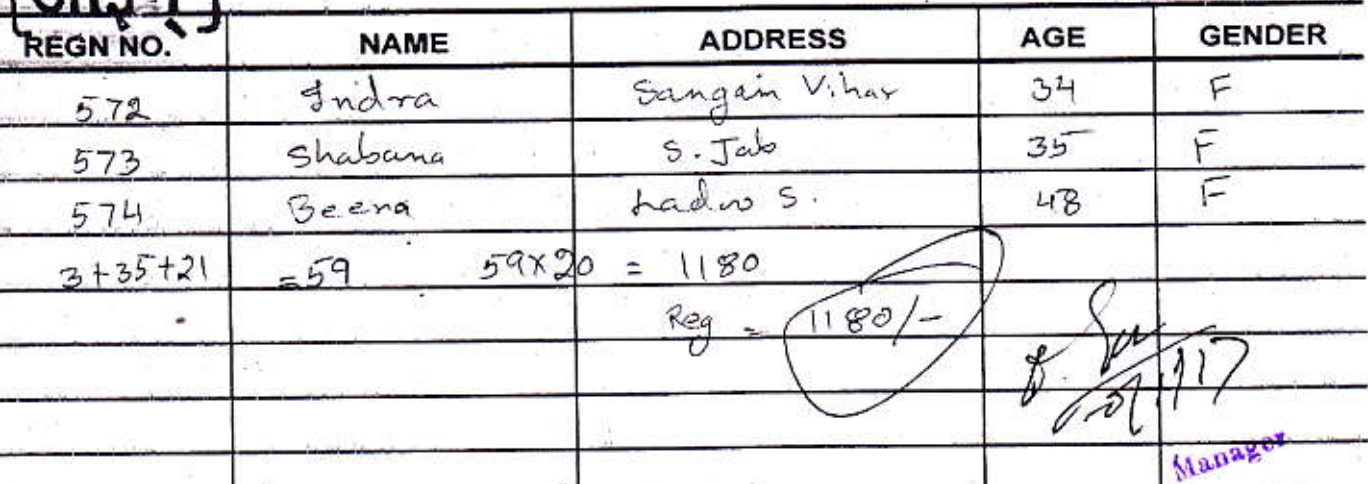 REGN NO. NAME ADDRESS AGE GENDER
572 Indra Sangam Vihar 34 F
573 Shabana S. Jab 35 F
574 Beena Lado S. 48 F
3+35+21 =59 59x20 = 1180
Reg = 1180/-
Manager